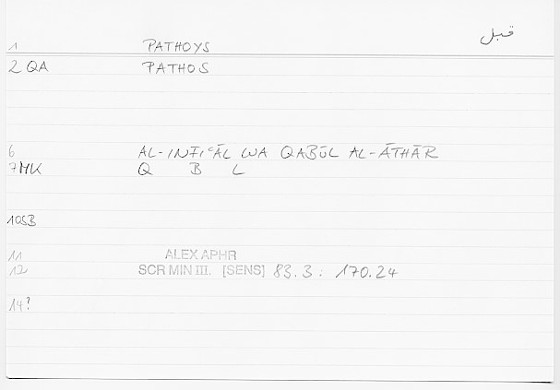 قبل
1 PATHOYS
2 QA PATHOS
6 AL-INFIʿĀL WA QABŪL AL-ĀTHĀR
7 MK Q B L
10 SB
11 ALEX APHR
12 SCR MIN III. [SENS] 83.3 : 170.24
14?